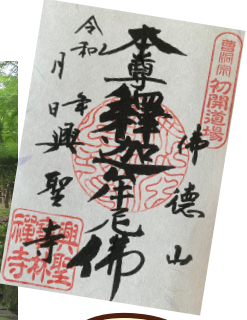 曹洞宗
初開道場
佛德山
本尊釋迦牟尼佛
令和 年
月 日
興聖寺
興聖
寺